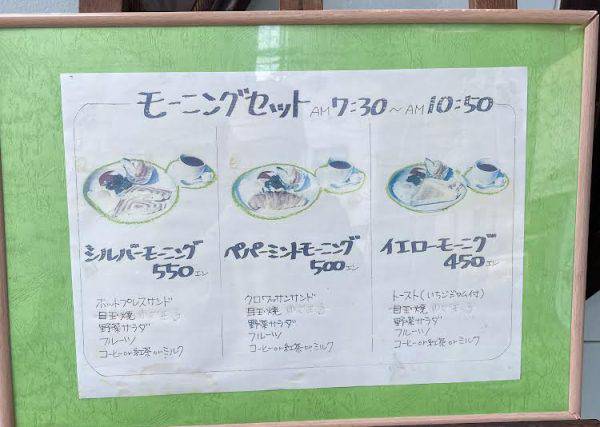 モーニングセット AM 7:30 ~ AM 10:50
シルバーモーニング
550エン
ホットプレスサンド
目玉焼 ゆでまご
野菜サラダ
フルーツ
コーヒーor紅茶orミルク
ペパーミントモーニング
500エン
クロワッサンサンド
目玉焼 ゆでまご
野菜サラダ
フルーツ
コーヒーor紅茶orミルク
イエローモーニグ
450エン
トースト(いちごジャム付)
目玉焼
野菜サラダ
フルーツ
コーヒーor紅茶orミルク